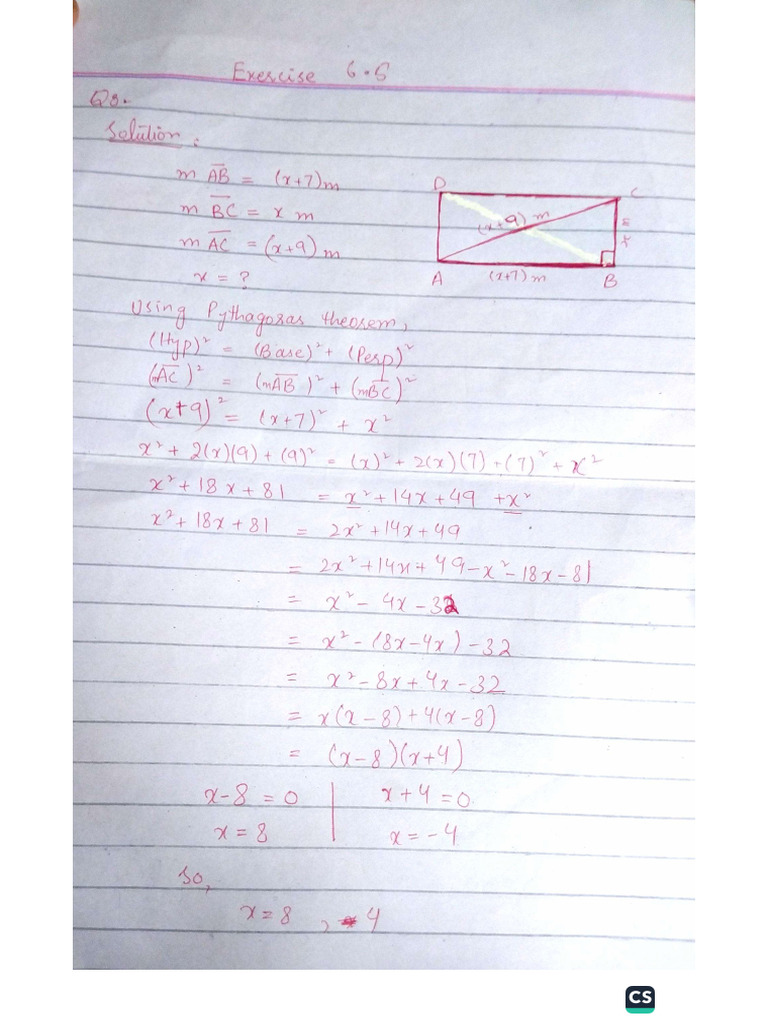 Exercise 6.5
Q8.
Solution:
m A̅B̅ = (x+7)m
m B̅C̅ = x m
m A̅C̅ = (x+9)m
x = ?
D
C
(x+9) m
x m
A
(x+7) m
B
Using Pythagoras theorem,
(Hyp)² = (Base)² + (Perp)²
(mA̅C̅)² = (mA̅B̅)² + (mB̅C̅)²
(x+9)² = (x+7)² + x²
x² + 2(x)(9) + (9)² = (x)² + 2(x)(7) + (7)² + x²
x² + 18x + 81 = x² + 14x + 49 + x²
x² + 18x + 81 = 2x² + 14x + 49
= 2x² + 14x + 49 - x² - 18x - 81
= x² - 4x - 32
= x² - (8x - 4x) - 32
= x² - 8x + 4x - 32
= x(x - 8) + 4(x - 8)
= (x - 8)(x + 4)
x - 8 = 0 | x + 4 = 0
x = 8 | x = -4
So,
x = 8 , -4
CS